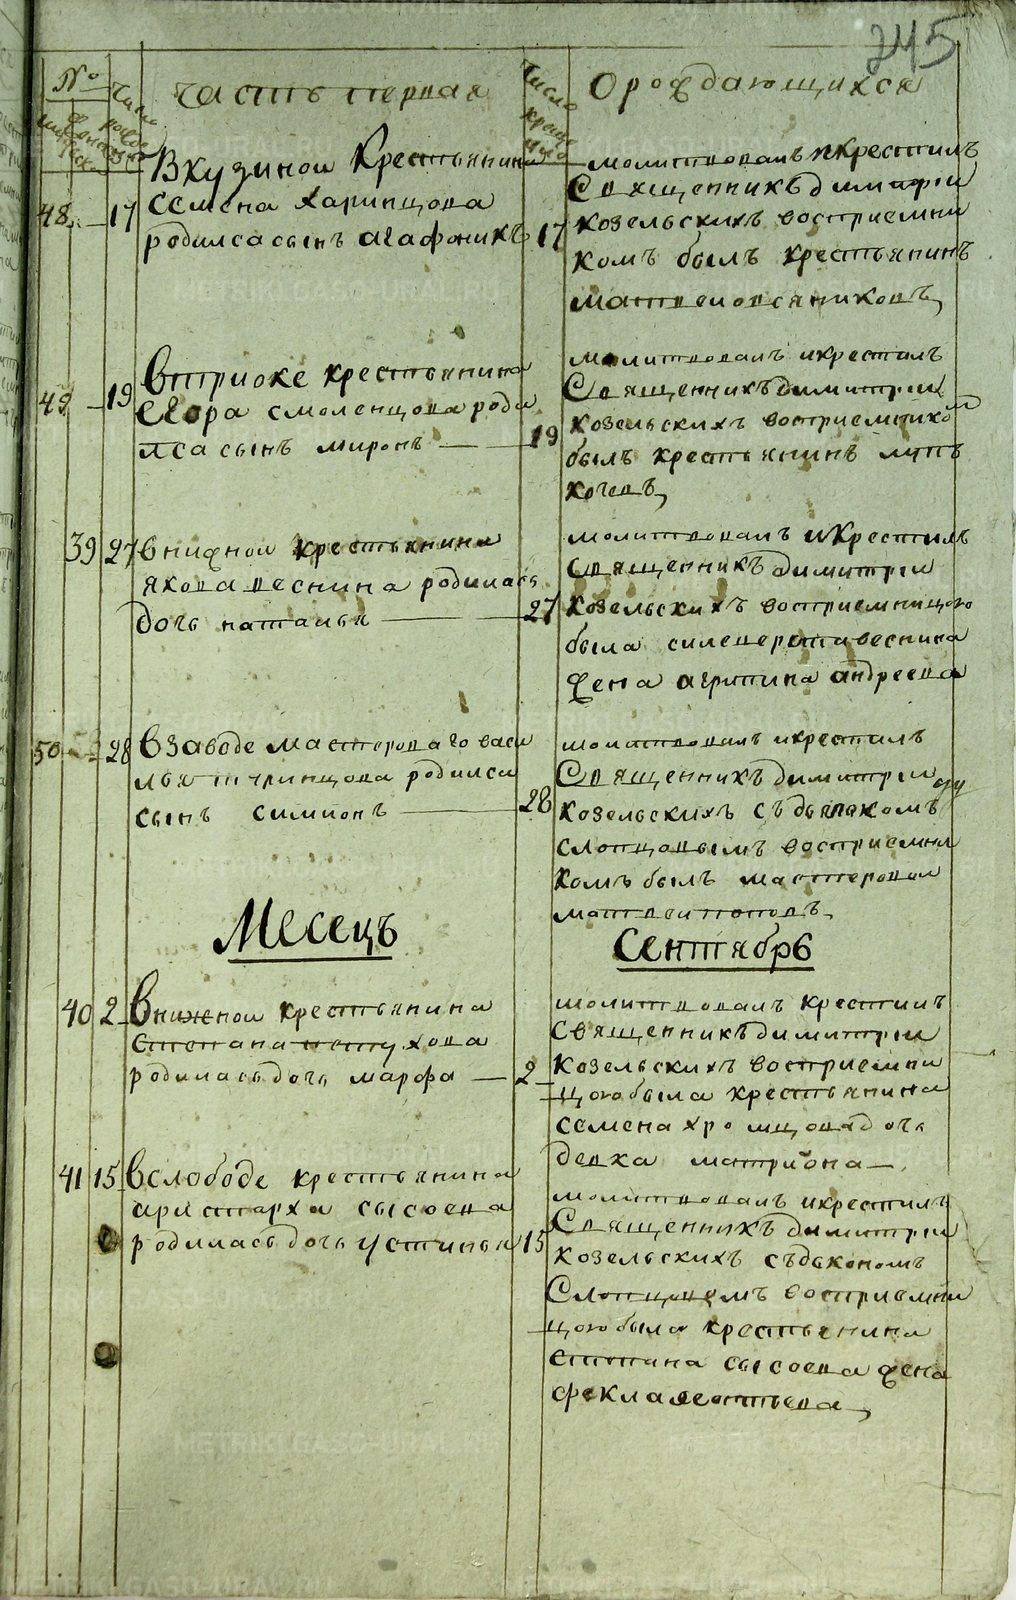 245
№ Часть первая О рождающихся
Число
48 17 В кузиной Крестьянина
семена Харинцова
родилса сынъ агафоникъ
17 молитвовалъ икрестилъ
Священникъ димитрiи
козельскихъ восприемни
комъ былъ крестьянинъ
матвеи овсяниковъ,
49 19 Втриоке крестьянина
егора смоленцова роди
лса сынъ миронъ
19 молитвовалъ икрестилъ
Священникъ димитрiи
козельскихъ восприемникомъ
былъ крестьянинъ
39 27 внижнои крестьянина
якова веснина родилась
дочь наталья
27 молитвовалъ икрестилъ
Священникъ димитрiи
козельскихъ восприемницою
была силевертста веснина
жена агрипина андреева
50 28 Взаводе мастероваго васи
лья родилса
сынъ симионъ
28 молитвовалъ икрестилъ
Священникъ димитрiи
козельскихъ съ дьячкомъ
слопцовымъ восприемни
комъ былъ мастеровои
матвеи поповъ
Месецъ Сентябрь
40 2 Внижнои крестьянина
Степана петухова
родилась дочь марфа
2 молитвовалъ крестилъ
Священникъ димитрiи
козельскихъ восприемни
цою была крестьянина
семена хромцова дочь
девка матриона
41 15 вслободе крестьянина
аристарха сысоева
родилась дочь устинья
15 молитвовалъ икрестилъ
Священникъ димитрiи
козельскихъ съдьякономъ
Слопцовымъ восприемни
цою была крестьянина
степана сысоева жена
фекла леонтьева,